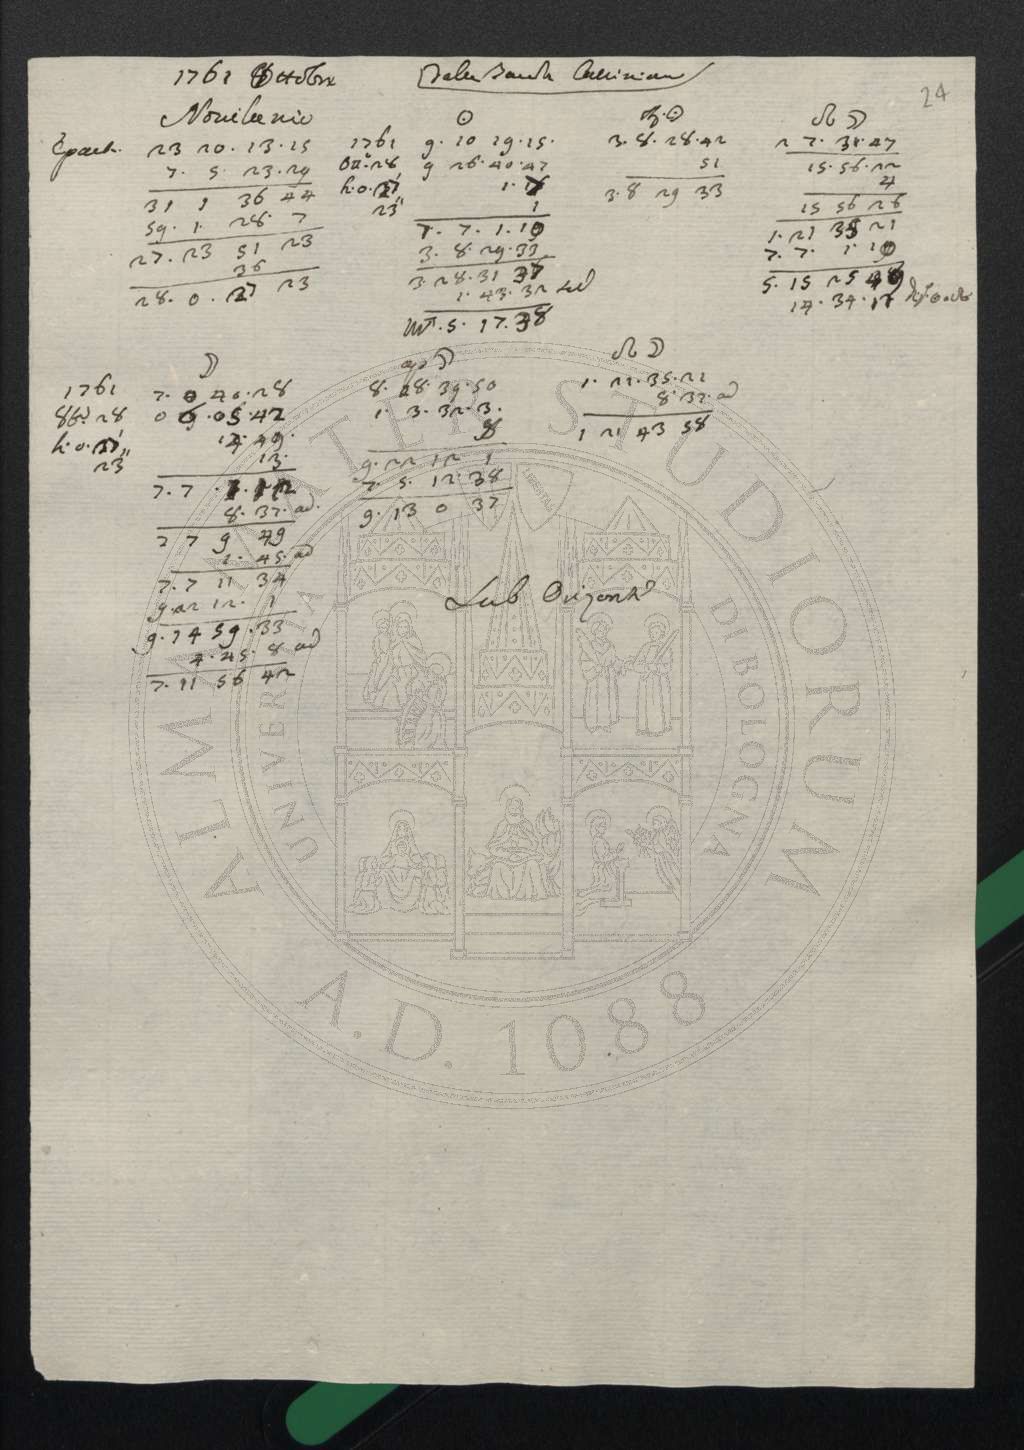 1761 Ottobre
24
Novilunio
☉
☊ ☽
Epact. 23 20. 13. 15
7. 5. 23. 29
31 1 36 44
59. 1. 28. 7
27. 23 51 23
36
28. 0. 27 23
1761 9. 10 19. 15.
8bre 28 9 26. 40. 47
h. 0. 27' 1. 7
23" 1
7. 7. 1. 10
3. 8. 29. 33
3. 28. 31 37
1. 43. 32 sub
5. 17. 38
3. 8. 28. 42
51
3. 8 29 33
2 7. 31. 47
15. 56. 22
4
15 56 26
1. 21 35 21
7. 7. 1 10
5. 15 25 49
14. 34. 11
☽
1761 7. 0 40. 28
8bre 28 0 6. 05. 42
h. 0. 27' 14. 49.
23" 13.
7. 7. 1. 12
8. 37. ad.
7 7 9 49
1. 45. ad
7. 7 11 34
9. 22 12. 1
9. 14 59. 33
4. 45. 8 ad
7. 11 56 42
8. 18. 39. 50
1. 3. 32. 3.
8
9. 22 12 1
7. 5. 12. 38
9. 13 0 37
☊ ☽
1. 21. 35. 21
8. 37. ad
1 21 43 58
Sub Orizonte
ALMA MATER STUDIORUM
UNIVERSITÀ DI BOLOGNA
A.D. 1088